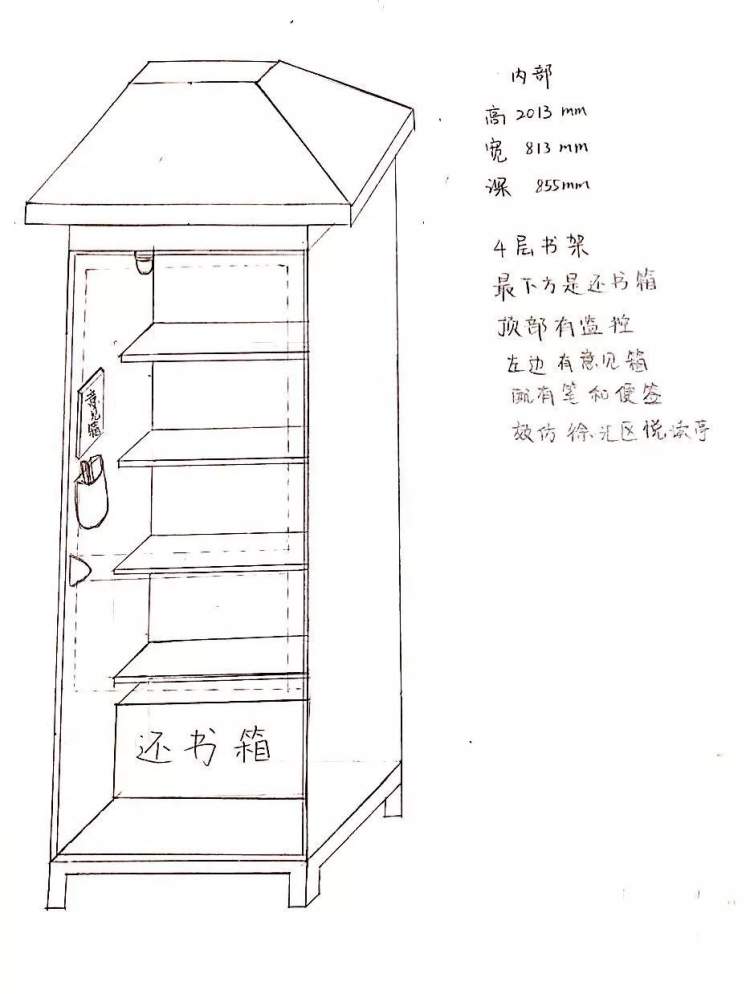 内部
高 2013 mm
宽 813 mm
深 855mm
4层书架
最下方是还书箱
顶部有监控
左边有意见箱
配有笔和便签
效仿徐汇区悦读亭
意见箱
还书箱